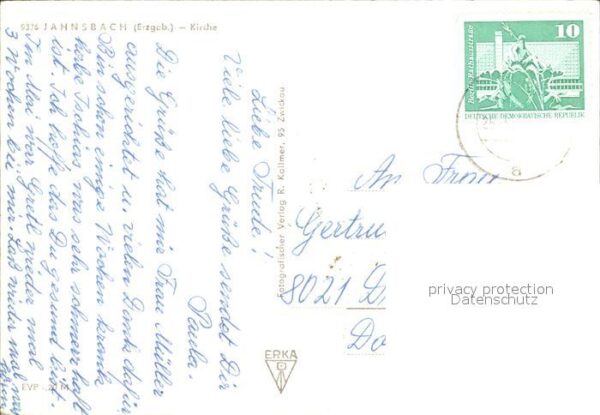 9376 JAHNSBACH (Erzgeb.) – Kirche
Liebe Trude!
Viele liebe Grüße sendet Dir
Paula.
Die Grüße hat mir Frau Müller
ausgerichtet u. vielen Dank dafür
Bin schon einige Wochen krank
habe Ischias was sehr schmerzhaft
ist. Ich hoffe das Du gesund bist.
Im Mai war Gretl wieder mal
3 Wochen bei mir. Laß mal
EVP
Fotografischer Verlag R. Kallmer, 95 Zwickau
ERKA
10
Berlin, Rathausstraße
DEUTSCHE DEMOKRATISCHE REPUBLIK
a
An Frau
Gertru
8021 D
Do
privacy protection
Datenschutz